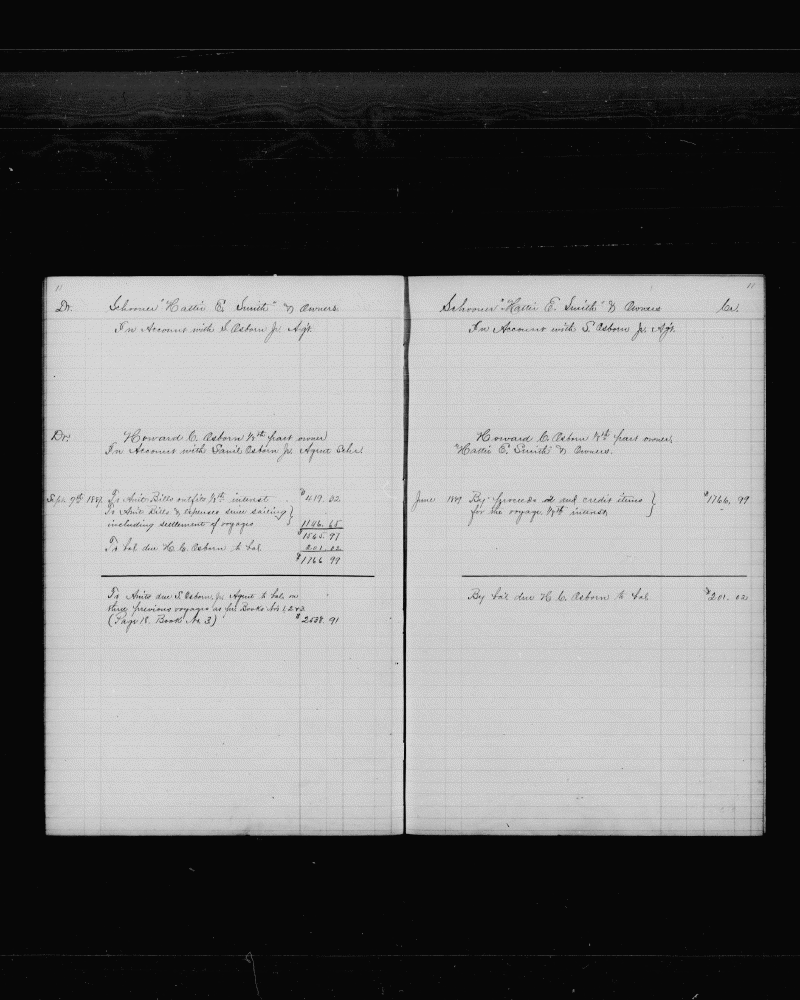 11
Dr. Schooner "Hattie E. Smith" & Owners
In Account with S. Osborn Jr. Agt.
Dr. Howard C. Osborn 1/8th part owner
In Account with Saml Osborn Jr. Agent Schr.
Sept. 9th 1887 To Amt Bills outfits 1/8th interest $419.32
To Amt Bills & Expenses since sailing
including settlement of voyages 1146.65
$1565.97
To bal due H. C. Osborn to bal. 201.02
$1766.99
To Amts due S. Osborn Jr. Agent to bal. on
three previous voyages as per Books Nos 1, 2 & 3
(Page 18. Book No. 3) $2538.91
11
Schooner "Hattie E. Smith" & Owners Cr.
In Account with S. Osborn Jr. Agt.
Howard C. Osborn 1/8th part owner,
"Hattie E. Smith" & Owners.
June 1889 By proceeds oil and credit items $1766.99
for the voyage 1/8th interest
By bal. due H. C. Osborn to bal. $201.02